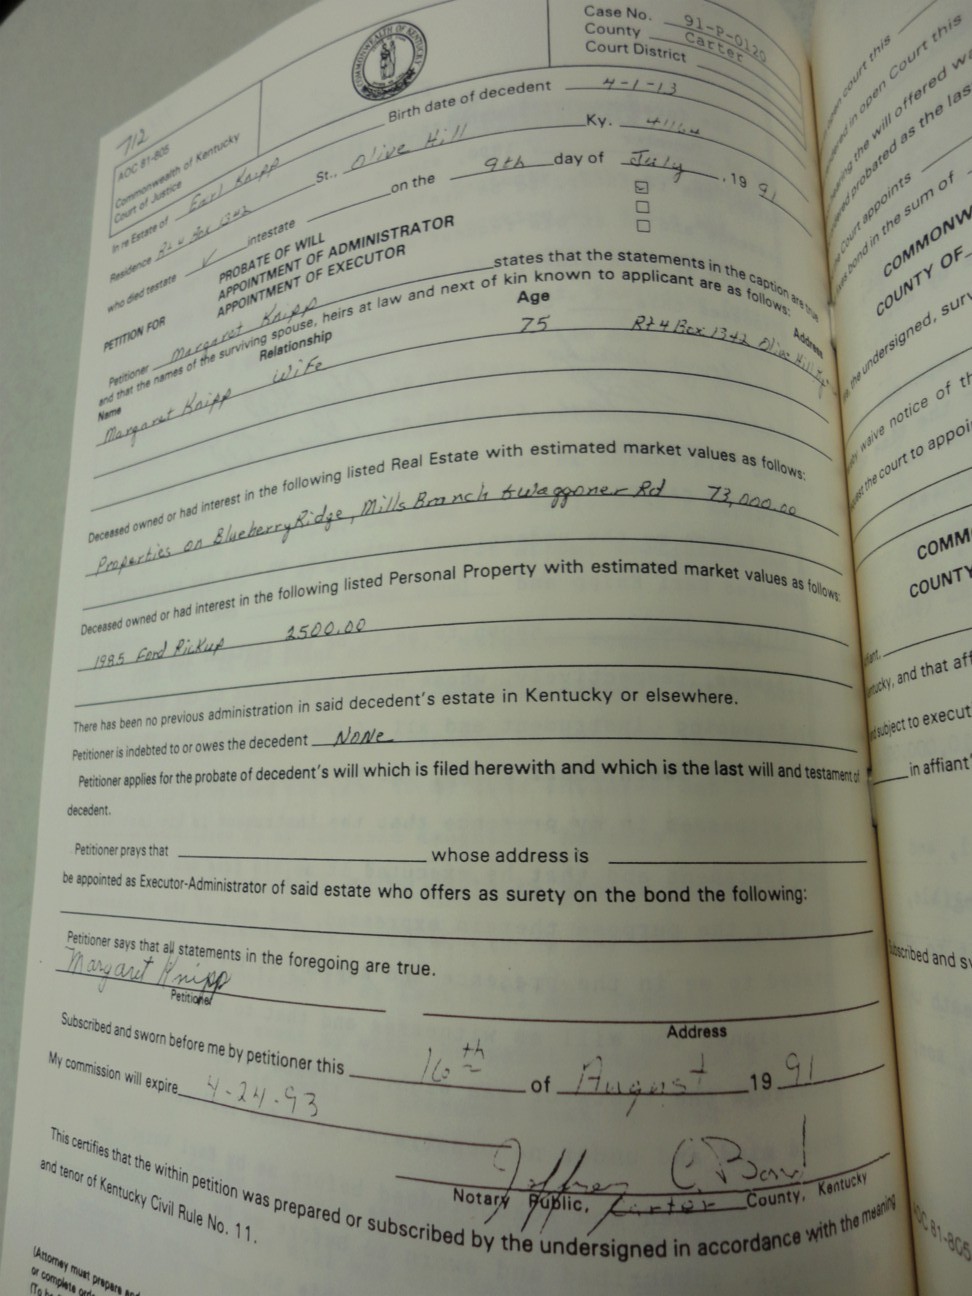 712
AOC 81-805
Commonwealth of Kentucky
Court of Justice
COMMONWEALTH OF KENTUCKY
Case No. 91-P-0120
County Carter
Court District
In re Estate of Earl Knipp Birth date of decedent 4-1-13
Residence Rt 4 Box 1342 St., Olive Hill Ky. 41164
who died testate ✓ intestate on the 9th day of July, 19 91
PETITION FOR PROBATE OF WILL
APPOINTMENT OF ADMINISTRATOR
APPOINTMENT OF EXECUTOR
Petitioner Margaret Knipp states that the statements in the caption are true
and that the names of the surviving spouse, heirs at law and next of kin known to applicant are as follows:
Name Relationship Age Address
Margaret Knipp Wife 75 Rt 4 Box 1342 Olive Hill Ky
Deceased owned or had interest in the following listed Real Estate with estimated market values as follows:
Properties on Blueberry Ridge, Mills Branch & Waggoner Rd 73,000.00
Deceased owned or had interest in the following listed Personal Property with estimated market values as follows:
1985 Ford Pickup 2500.00
There has been no previous administration in said decedent's estate in Kentucky or elsewhere.
Petitioner is indebted to or owes the decedent None
Petitioner applies for the probate of decedent's will which is filed herewith and which is the last will and testament of
decedent.
Petitioner prays that whose address is
be appointed as Executor-Administrator of said estate who offers as surety on the bond the following:
Petitioner says that all statements in the foregoing are true.
Margaret Knipp
Petitioner
Address
Subscribed and sworn before me by petitioner this 16th of August 19 91
My commission will expire 4-24-93
Jeffrey C.
Notary Public, Carter County, Kentucky
This certifies that the within petition was prepared or subscribed by the undersigned in accordance with the meaning
and tenor of Kentucky Civil Rule No. 11.
(Attorney must prepare and
or complete
(To be
open court this
in open Court this
the will offered
probated as the last
Court appoints
bond in the sum of
COMMONW
COUNTY OF
the undersigned,
waive notice of
the court to appoi
COMM
COUNTY
and that aff
subject to execut
in affiant'
and
AOC 81-805